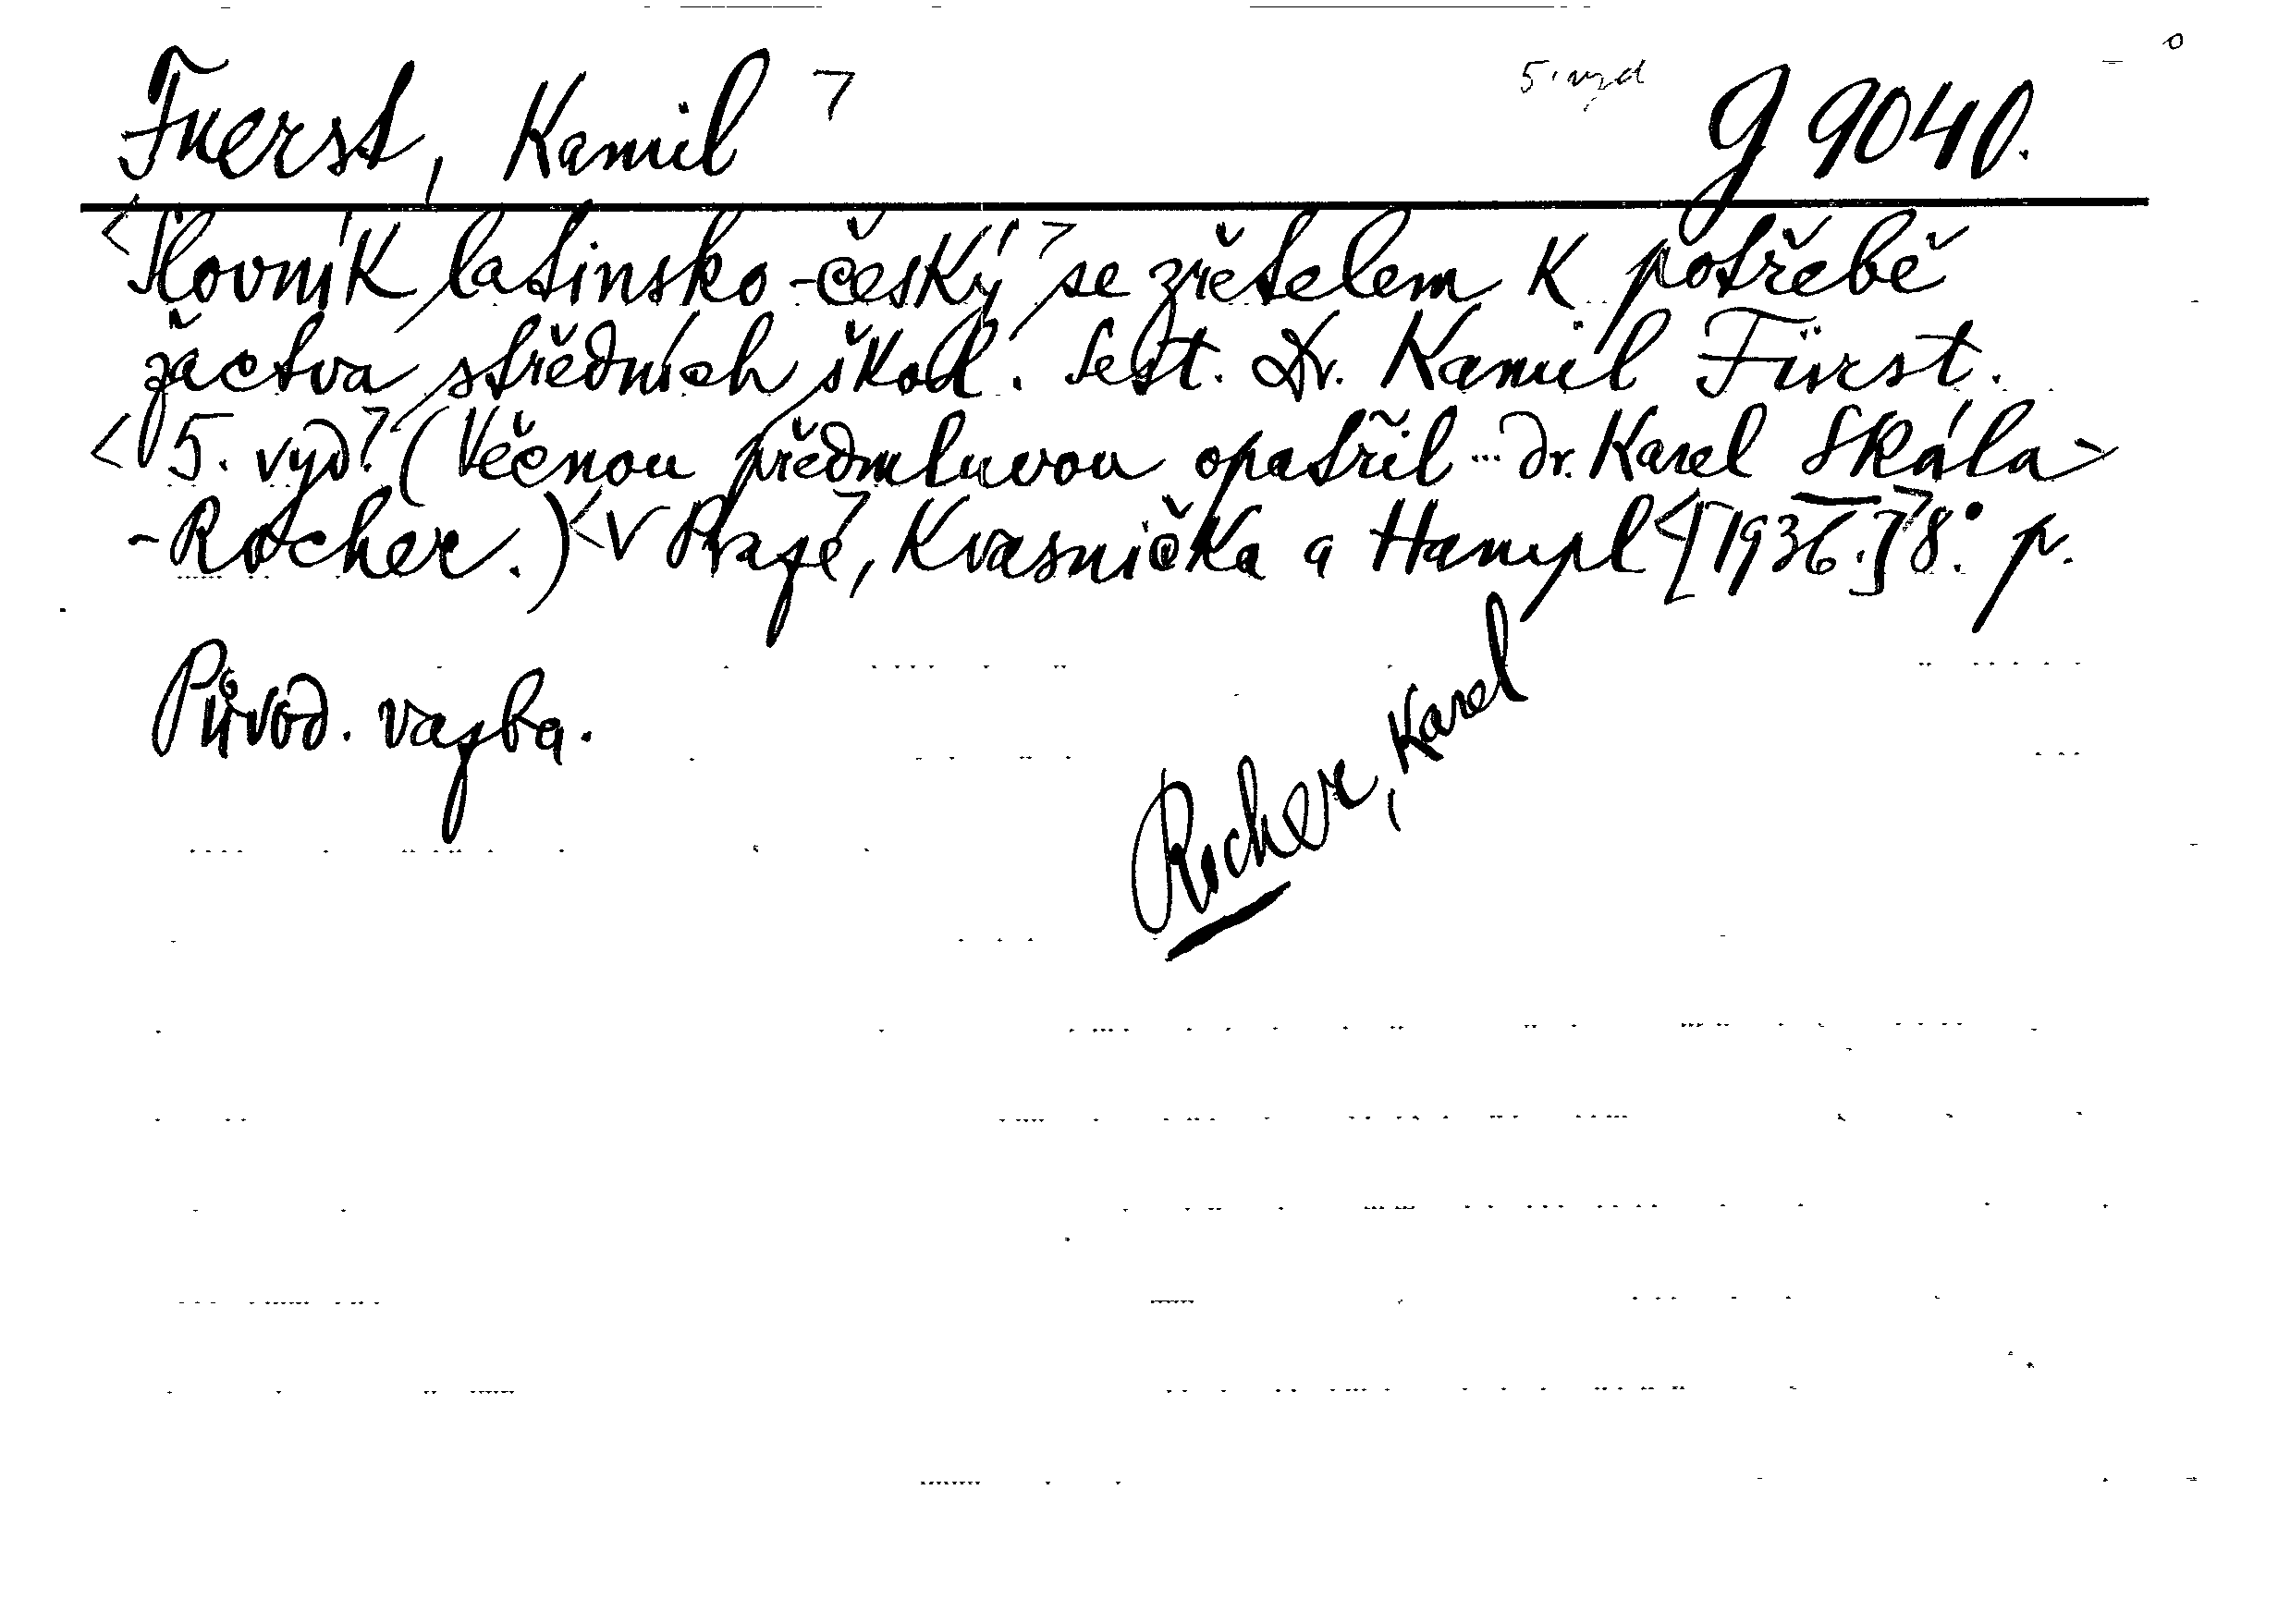 Fuerst, Kamil > 5. vyd G 9040.
<Slovník latinsko-český> se zřetelem k potřebě
žactva středních škol. Sest. Dr. Kamil Fürst.
<5. vyd.> (Věcnou předmluvou opatřil ... dr. Karel Skála-
-Rocher.) <V Praze>, Kvasnička a Hampl <[1936.]> 8° p.
Původ. vazba.
Rocher, Karel